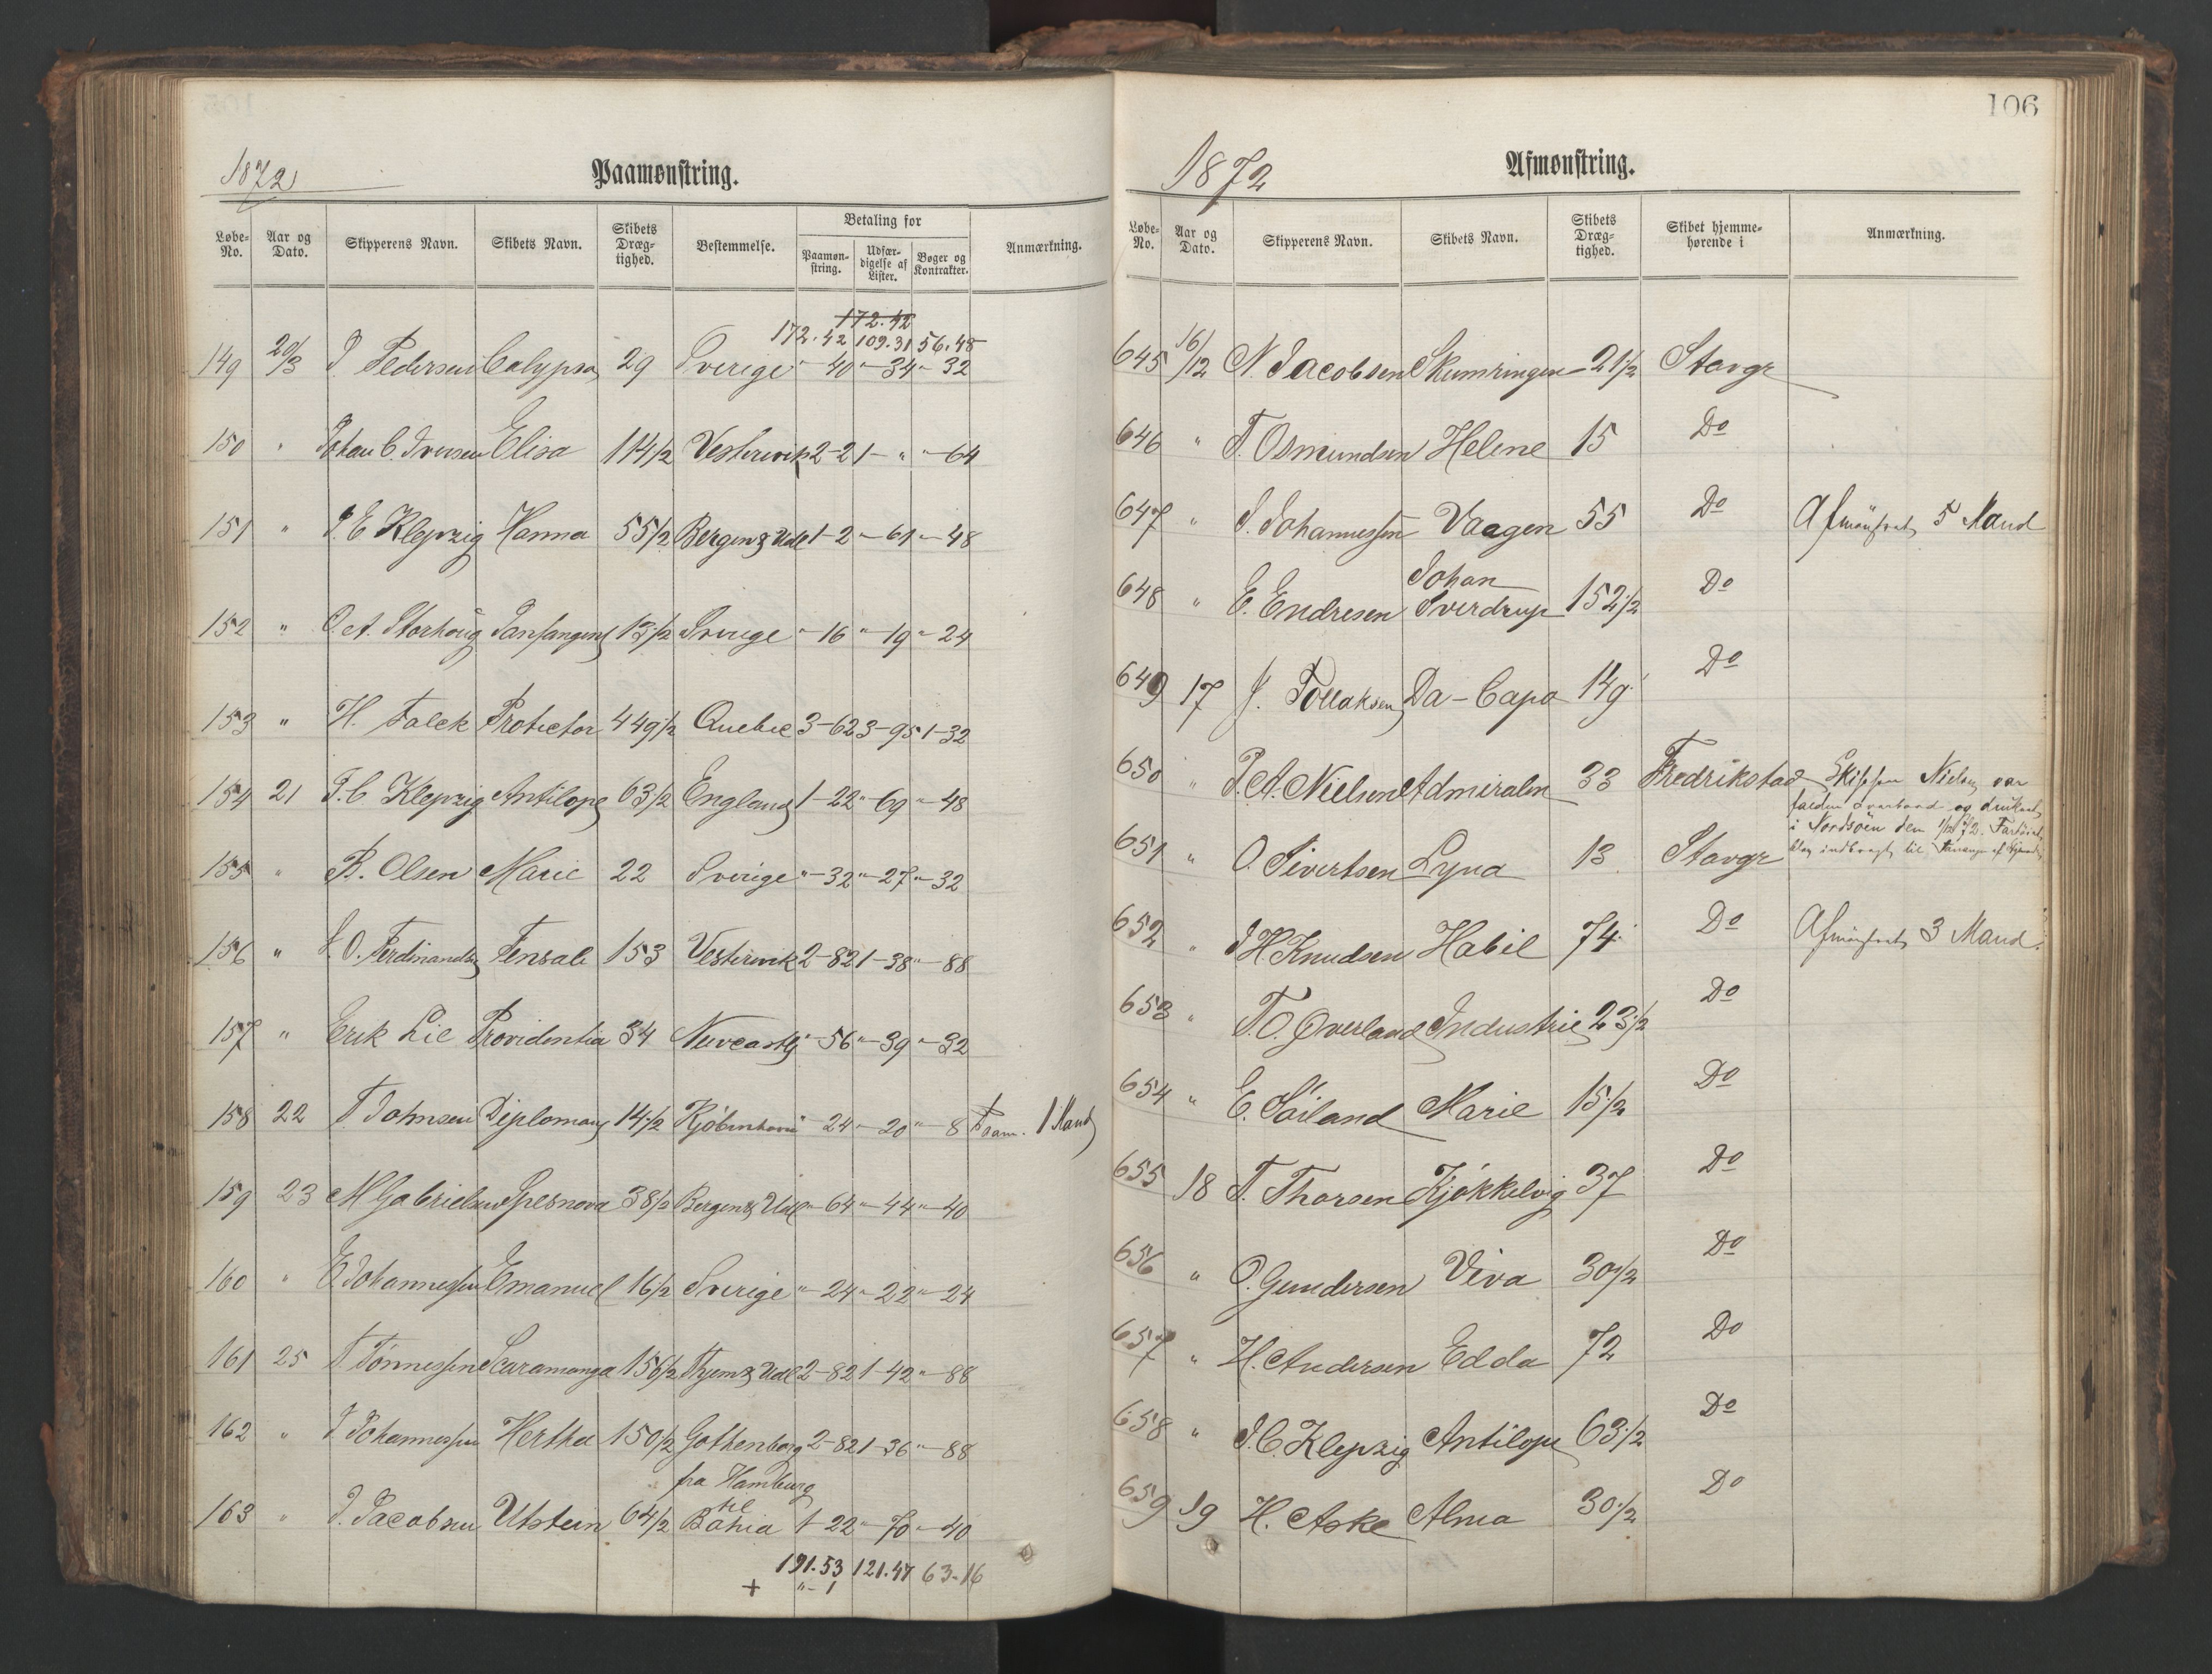 1872
Paamønstring.
Løbe-No. Aar og Dato. Skipperens Navn. Skibets Navn. Skibets Dræg-tighed. Bestemmelse. Betaling for Paamøn-string. Udfær-digelse af Lister. Bøger og Kontrakter. Anmærkning.
172.42
172.42 109.31 56.48
149 20/3 J Pedersen Calypso 29 Sverige " - 40 " - 34 " - 32
150 " Johan C. Iversen Elisa 114 1/2 Vestervik 2-2 1- " " - 64
151 " J. E Klepzig Hanna 55 1/2 Bergen & Udl 1-2 " - 61 " - 48
152 " O. A. Storhoug 13 1/2 Sverige " - 16 " - 19 " - 24
153 " H. Falck Protector 449 1/2 Quebec 3-62 3-95 1-32
154 21 J. C Klepzig Antilope 63 1/2 England 1-22 " - 69 " - 48
155 " B. Olsen Marie 22 Sverige " - 32 " - 27 " - 32
156 " O. Ferdinandsen Fensale 153 Vestervik 2-82 1-38 " - 88
157 " Erik Lie Providentia 34 Newcastle " - 56 " - 39 " - 32
158 22 T Johnsen Diploman 14 1/2 Kjøbenhavn " - 24 " - 20 " - 8 1 Mand
159 23 M Gabrielsen Spesnova 38 1/2 Bergen & Udl " - 64 " - 44 " - 40
160 " E Johannessen Emanuel 16 1/2 Sverige " - 24 " - 22 " - 24
161 25 T Tønnessen Scaramanga 156 1/2 Thjem & Udl 2-82 1-42 " - 88
162 " J Johannessen Hertha 150 1/2 Gothenborg 2-82 1-36 " - 88
fra Hamburg
til
163 " J. Jacobsen Utstein 64 1/2 Bahia 1-22 " - 70 " - 40
191.53 121.47 63.16
+ " - 1
106
1872
Afmønstring.
Løbe-No. Aar og Dato. Skipperens Navn. Skibets Navn. Skibets Dræg-tighed. Skibet hjemme-hørende i Anmærkning.
645 16/12 N. Jacobsen Skumringen 21 1/2 Stavgr
646 " T. Osmundsen Helene 15 Do
647 " S. Johannessen Vaagen 55 Do Afmönstret 5 Mand
Johan
648 " E. Endresen Sverdrup 152 1/2 Do
649 17 J. Tollaksen Da-Capo 149 Do
650 " P. A. Nielsen Admiralen 33 Fredrikstad Skipper Nielsen var
falden overbord og druknet
i Nordsöen den 1/12 72. Fartöiet
blev indbragt til Stavanger af
651 " O. Sivertsen Lyna 13 Stavgr
652 " J H. Knudsen Habil 74 Do Afmönstret 3 Mand.
653 " T. O. Qverland Industrie 23 1/2 Do
654 " E. Söiland Marie 15 1/2 Do
655 18 T. Thorsen Kjökkelvig 37 Do
656 " O. Gundersen Viva 30 1/2 Do
657 " H. Andersen Edda 72 Do
658 " J. C. Klepzig Antilope 63 1/2 Do
659 19 H. Aske Alma 30 1/2 Do